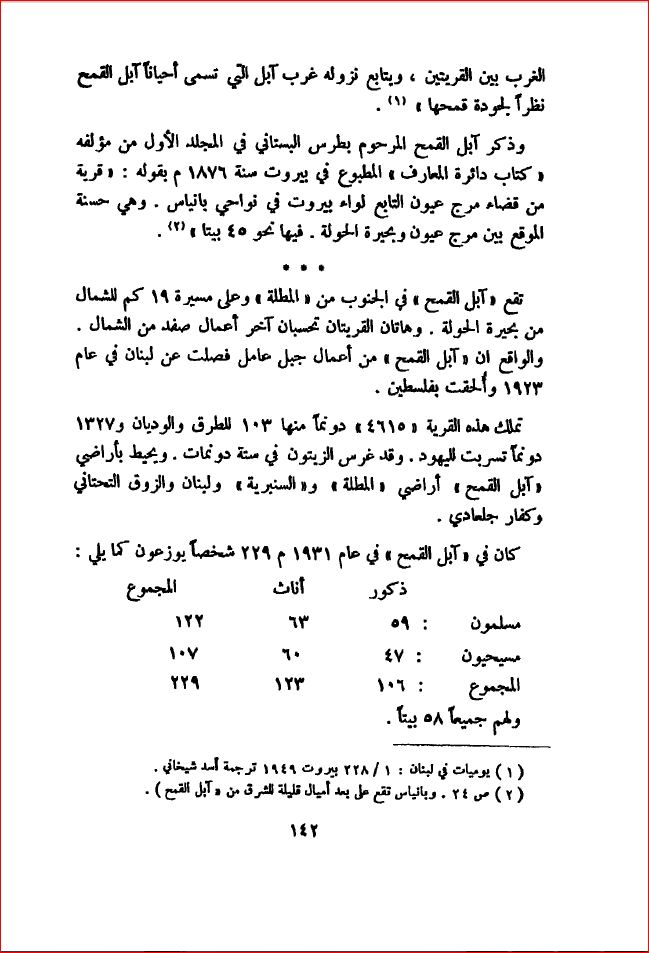 الغرب بين القريتين ، ويتابع نزوله غرب آبل التي تسمى أحياناً آبل القمح
نظراً لجودة قمحها » (١) .
وذكر آبل القمح المرحوم بطرس البستاني في المجلد الأول من مؤلفه
« كتاب دائرة المعارف » المطبوع في بيروت سنة ١٨٧٦ م بقوله : « قرية
من قضاء مرج عيون التابع لواء بيروت في نواحي بانياس . وهي حسنة
الموقع بين مرج عيون وبحيرة الحولة . فيها نحو ٤٥ بيتا » (٢) .
* * *
تقع « آبل القمح » في الجنوب من « المطلة » وعلى مسيرة ١٩ كم للشمال
من بحيرة الحولة . وهاتان القريتان تحسبان آخر أعمال صفد من الشمال .
والواقع ان « آبل القمح » من أعمال جبل عامل فصلت عن لبنان في عام
١٩٢٣ وأُلحقت بفلسطين .
تملك هذه القرية « ٤٦١٥ » دونماً منها ١٠٣ للطرق والوديان و١٣٢٧
دونماً تسربت لليهود . وقد غرس الزيتون في ستة دونمات . ويحيط بأراضي
« آبل القمح » أراضي « المطلة » و« السنبرية » ولبنان والزوق التحتاني
وكفار جلعادي .
كان في « آبل القمح » في عام ١٩٣١ م ٢٢٩ شخصاً يوزعون كما يلي :
ذكور أناث المجموع
مسلمون : ٥٩ ٦٣ ١٢٢
مسيحيون : ٤٧ ٦٠ ١٠٧
المجموع : ١٠٦ ١٢٣ ٢٢٩
ولهم جميعاً ٥٨ بيتاً .
( ١ ) يوميات في لبنان : ١ / ٢٢٨ بيروت ١٩٤٩ ترجمة أسد شيخاني .
( ٢ ) ص ٢٤ . وبانياس تقع على بعد أميال قليلة للشرق من « آبل القمح ) .
١٤٢